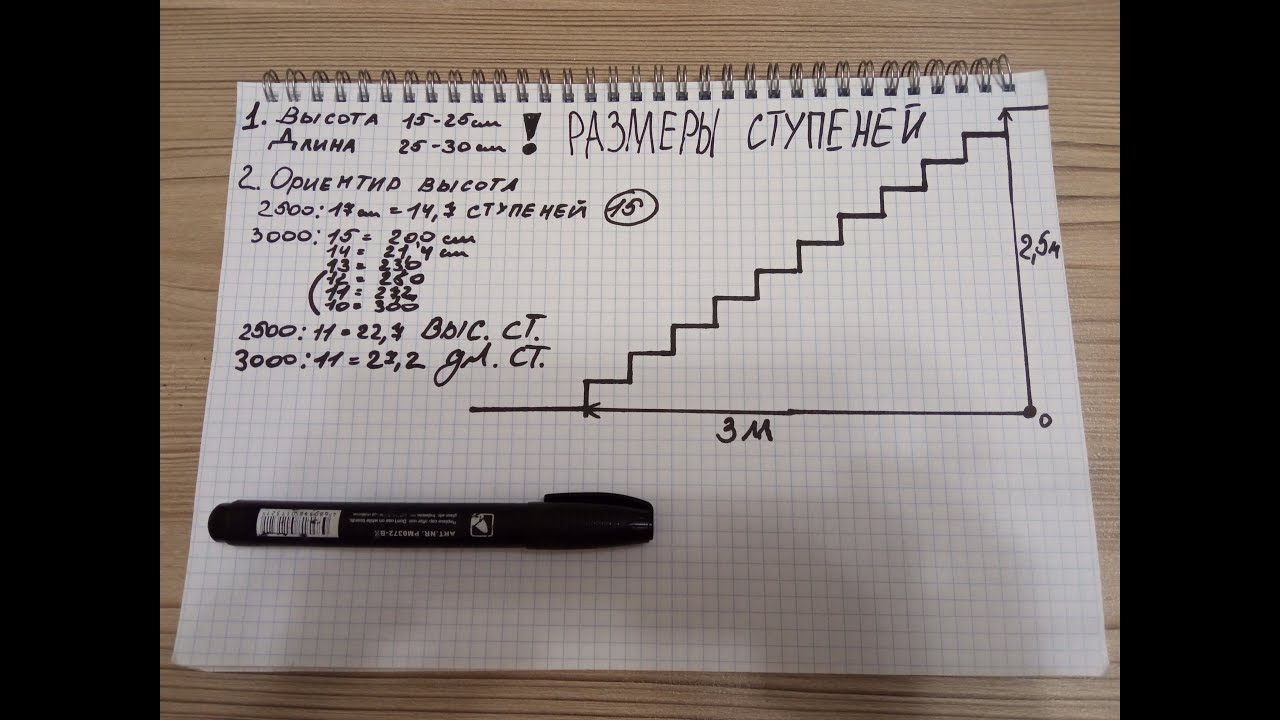 1. ВЫСОТА 15-25см !
ДЛИНА 25-30см
РАЗМЕРЫ СТУПЕНЕЙ
2. ОРИЕНТИР ВЫСОТА
2500:17см = 14,7 СТУПЕНЕЙ 15
3000:15 = 20,0 см
14 = 21,4 см
13 = 230
12 = 250
11 = 272
10 = 300
2500:11 = 22,7 ВЫС. СТ.
3000:11 = 27,2 ДЛ. СТ.
2,5м
3 М
0
ART.NR. PM0372-B